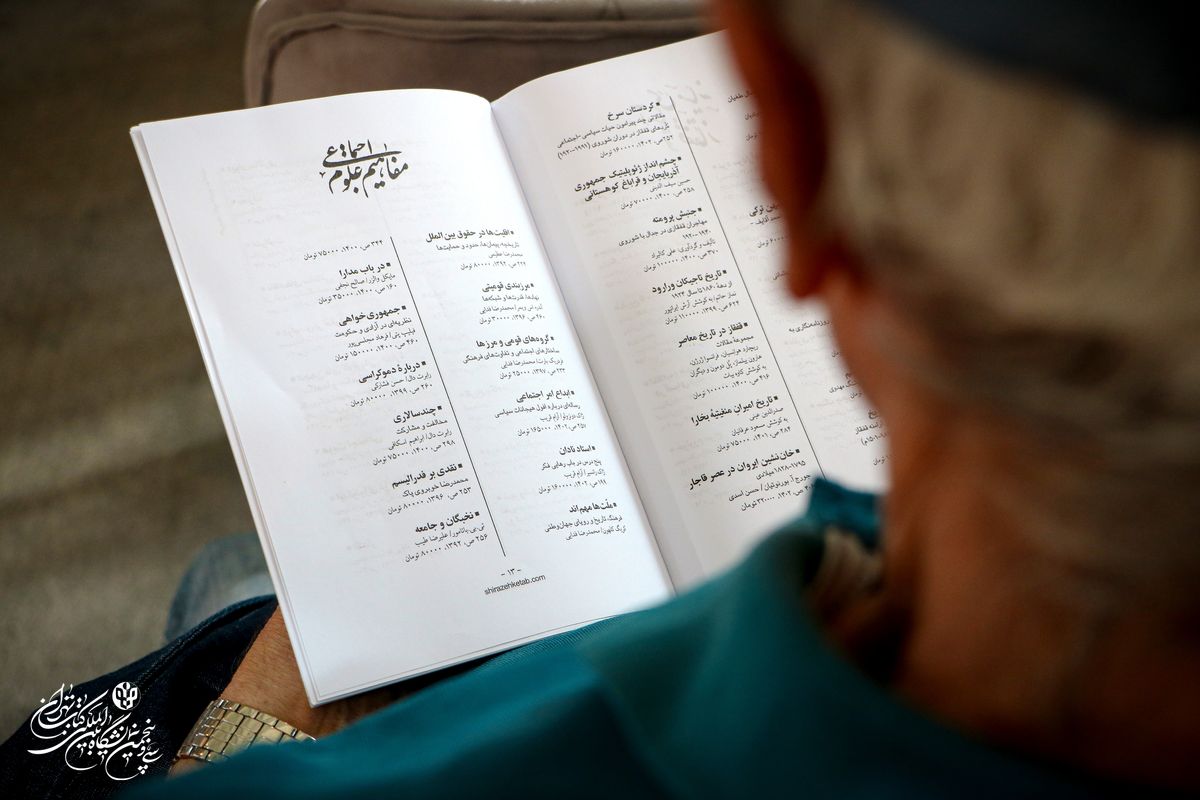 مفاهیم علوم اجتماعی
▪ اقلیت‌ها در حقوق بین‌الملل
تاریخچه، پیمان‌ها، حدود و حمایت‌ها
محمدرضا عظیمی
۲۲۴ ص، ۱۳۹۲، ۸۰۰۰۰ تومان
▪ مرزبندی قومیتی
نهادها، قدرت‌ها و شبکه‌ها
آندره‌اس ویمر/ محمدرضا فدایی
۴۶۰ ص، ۱۳۹۶، ۳۰۰۰۰ تومان
▪ گروه‌های قومی و مرزها
ساختارهای اجتماعی و تفاوت‌های فرهنگی
فردریک بارت/ محمدرضا فدایی
۲۳۳ ص، ۱۳۹۷، ۲۵۰۰۰ تومان
▪ ابداع امر اجتماعی
رساله‌ای درباره افول هیجانات سیاسی
ژاک دونزولو/ آرام قریب
۲۵۲ ص، ۱۴۰۲، ۱۶۵۰۰۰ تومان
▪ استاد نادان
پنج درس در باب رهایی فکر
ژاک رانسیر/ آرام قریب
۱۹۹ ص، ۱۴۰۲، ۱۶۰۰۰۰ تومان
▪ ملّت‌ها مهم‌اند
فرهنگ، تاریخ و رویای جهان‌وطنی
کریگ کلهون/ محمدرضا فدایی
۳۴۴ ص، ۱۴۰۰، ۷۵۰۰۰ تومان
▪ در باب مدارا
مایکل والزر/ صالح نجفی
۱۶۰ ص، ۱۴۰۰، ۳۵۰۰۰ تومان
▪ جمهوری‌خواهی
نظریه‌ای در آزادی و حکومت
فیلیپ پتی/ فرهاد مجلسی‌پور
۴۶۰ ص، ۱۴۰۰، ۱۵۰۰۰۰ تومان
▪ دربارهٔ دموکراسی
رابرت دال/ حسن فشارکی
۲۶۰ ص، ۱۳۹۹، ۸۰۰۰۰ تومان
▪ چندسالاری
مخالفت و مشارکت
رابرت دال/ ابراهیم اسکافی
۲۹۸ ص، ۱۴۰۰، ۷۵۰۰۰ تومان
▪ نقدی بر فدرالیسم
محمدرضا خوبروی پاک
۲۵۳ ص، ۱۳۹۶، ۸۰۰۰۰ تومان
▪ نخبگان و جامعه
تی.بی.باتامور/ علیرضا طیب
۲۵۶ ص، ۱۳۹۲، ۸۰۰۰۰ تومان
- ۱۳ -
shirazehketab.com
▪ کردستان سرخ
مقالاتی چند پیرامون حیات سیاسی - اجتماعی
کُردهای قفقاز در دوران شوروی (۱۹۹۱-۱۹۲۰)
۲۵۲ ص، ۱۴۰۲، ۱۶۰۰۰۰ تومان
▪ چشم‌انداز ژئوپلیتیک جمهوری
آذربایجان و قراباغ کوهستانی
حسین سیف‌الدینی
۲۵۸ ص، ۱۴۰۰، ۷۰۰۰۰ تومان
▪ جنبش پرومته
مهاجران قفقازی در جدال با شوروی
۱۹۴۰-۱۹۲۰
تألیف و گردآوری: علی کالیراد
۳۷۰ ص، ۱۴۰۰، ۱۰۰۰۰۰ تومان
▪ تاریخ تاجیکان ورارود
از دههٔ ۱۸۶۰ تا سال ۱۹۲۴
نماز حاتم/ به کوشش آرش ایرانپور
۶۲۴ ص، ۱۳۹۹، ۱۱۰۰۰۰ تومان
▪ قفقاز در تاریخ معاصر
مجموعه مقالات
ریچارد هوانسیان، فرانسوا ژرژن،
هارون ییلماز، پل دومون و دیگران
به کوشش کاوه بیات
۴۹۶ ص، ۱۴۰۰، ۱۰۰۰۰۰ تومان
▪ تاریخ امیران منغیتیهٔ بخارا
صدرالدین عینی
به کوشش مسعود عرفانیان
۲۸۴ ص، ۱۴۰۱، ۷۵۰۰۰ تومان
▪ خان‌نشین ایروان در عصر قاجار
۱۷۹۵-۱۸۲۸ میلادی
جورج آ. بورنوتیان/ حسن اسدی
ص، ۱۴۰۲، ۳۲۰۰۰۰ تومان
سی و پنجمین نمایشگاه بین‌المللی کتاب تهران